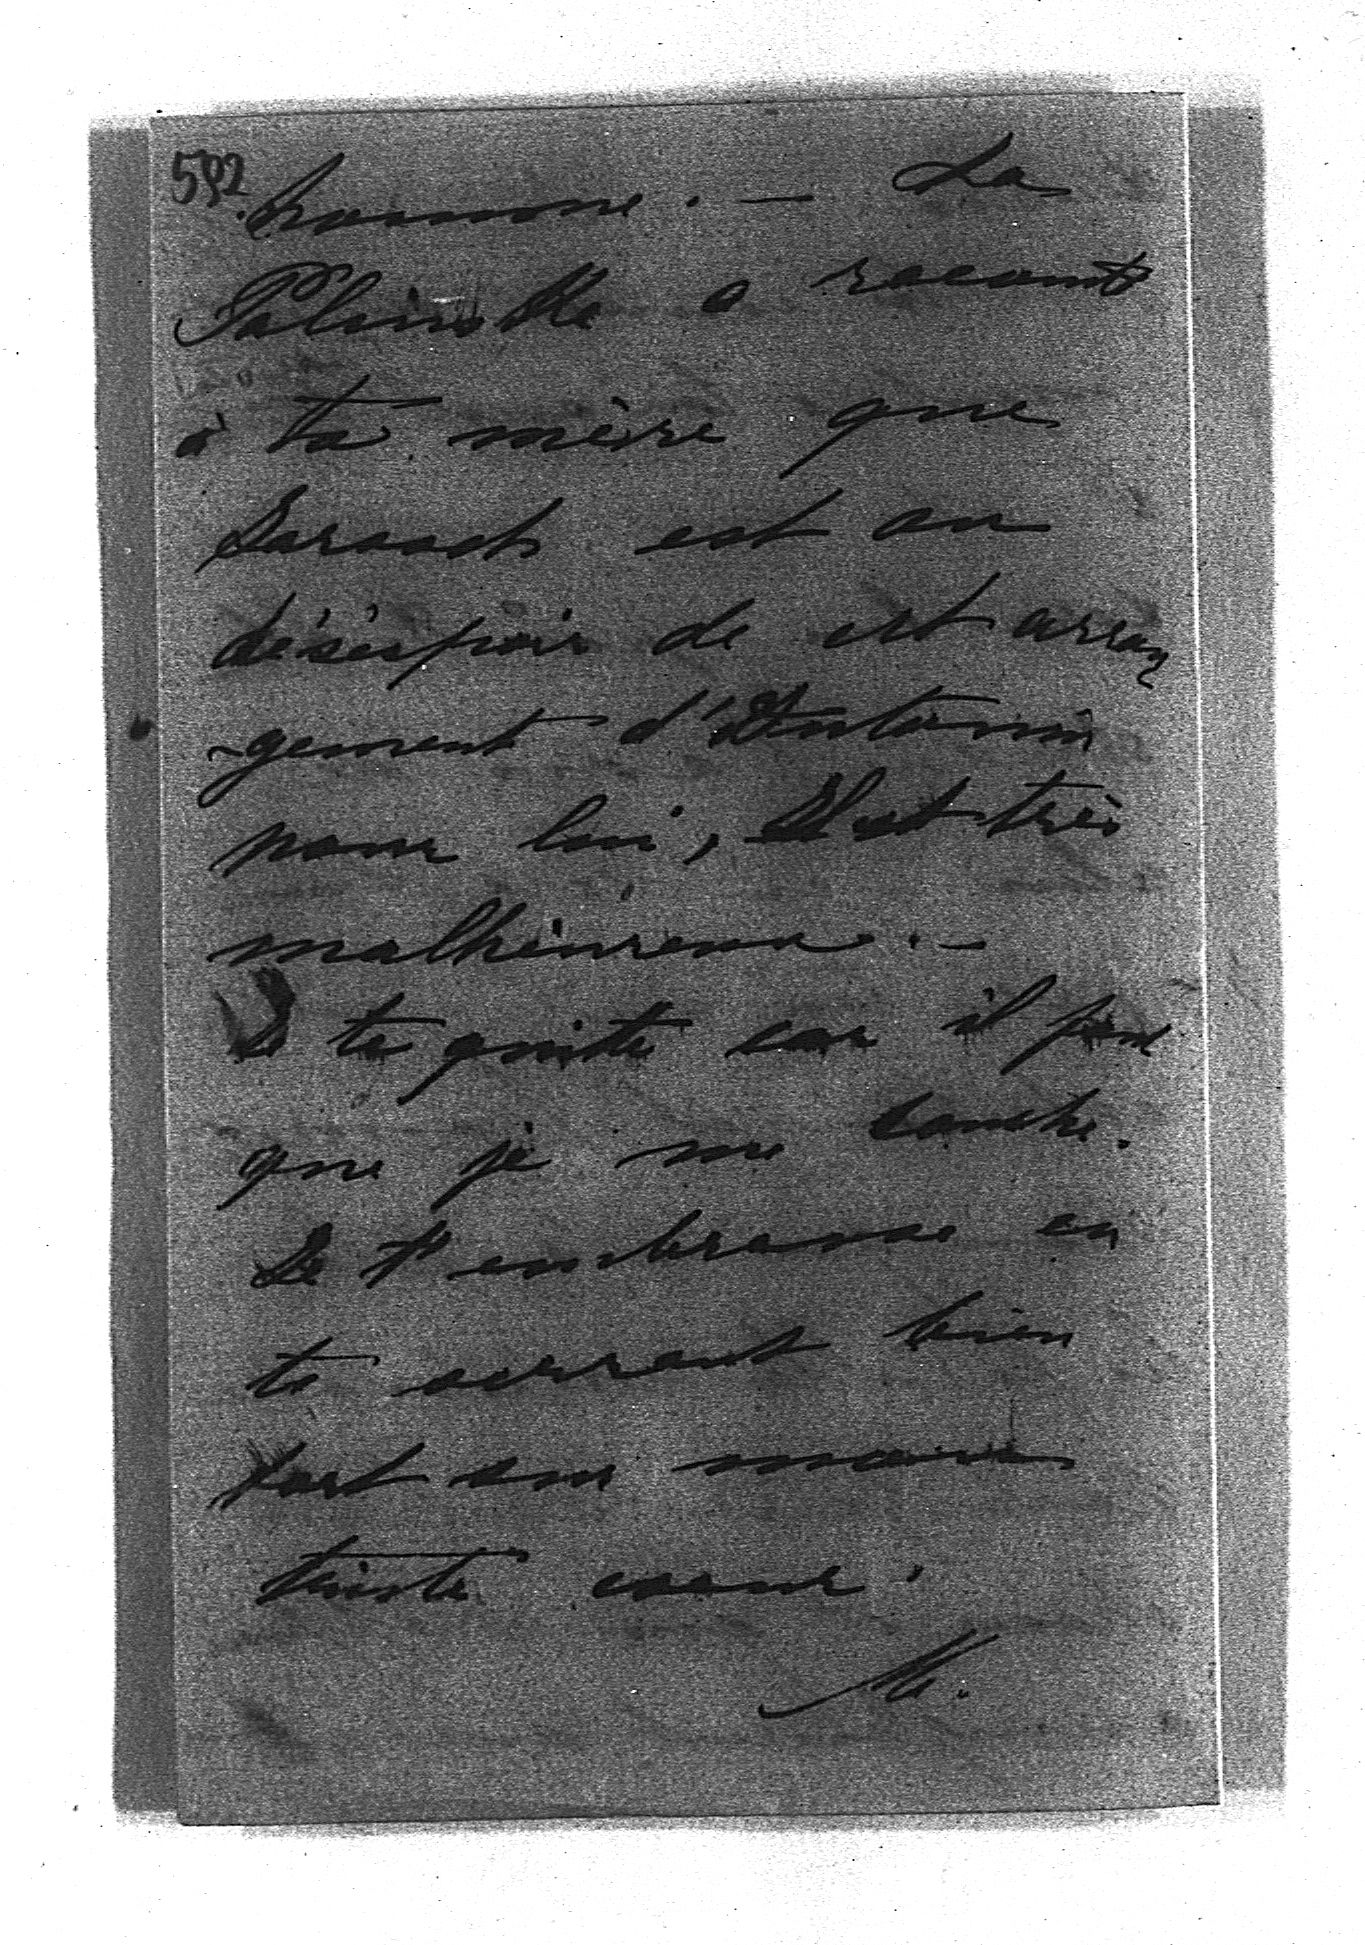 592
homme. — La
a raconté
à ta mère que
est au
déséspoir de cet arran
-gement d'Antonin
pour lui, Il est très
malheureux. —
Je te quitte car il faut
que je me couche.
Je t'embrasse en
te serrant bien
fort sur mon
triste coeur.
M.